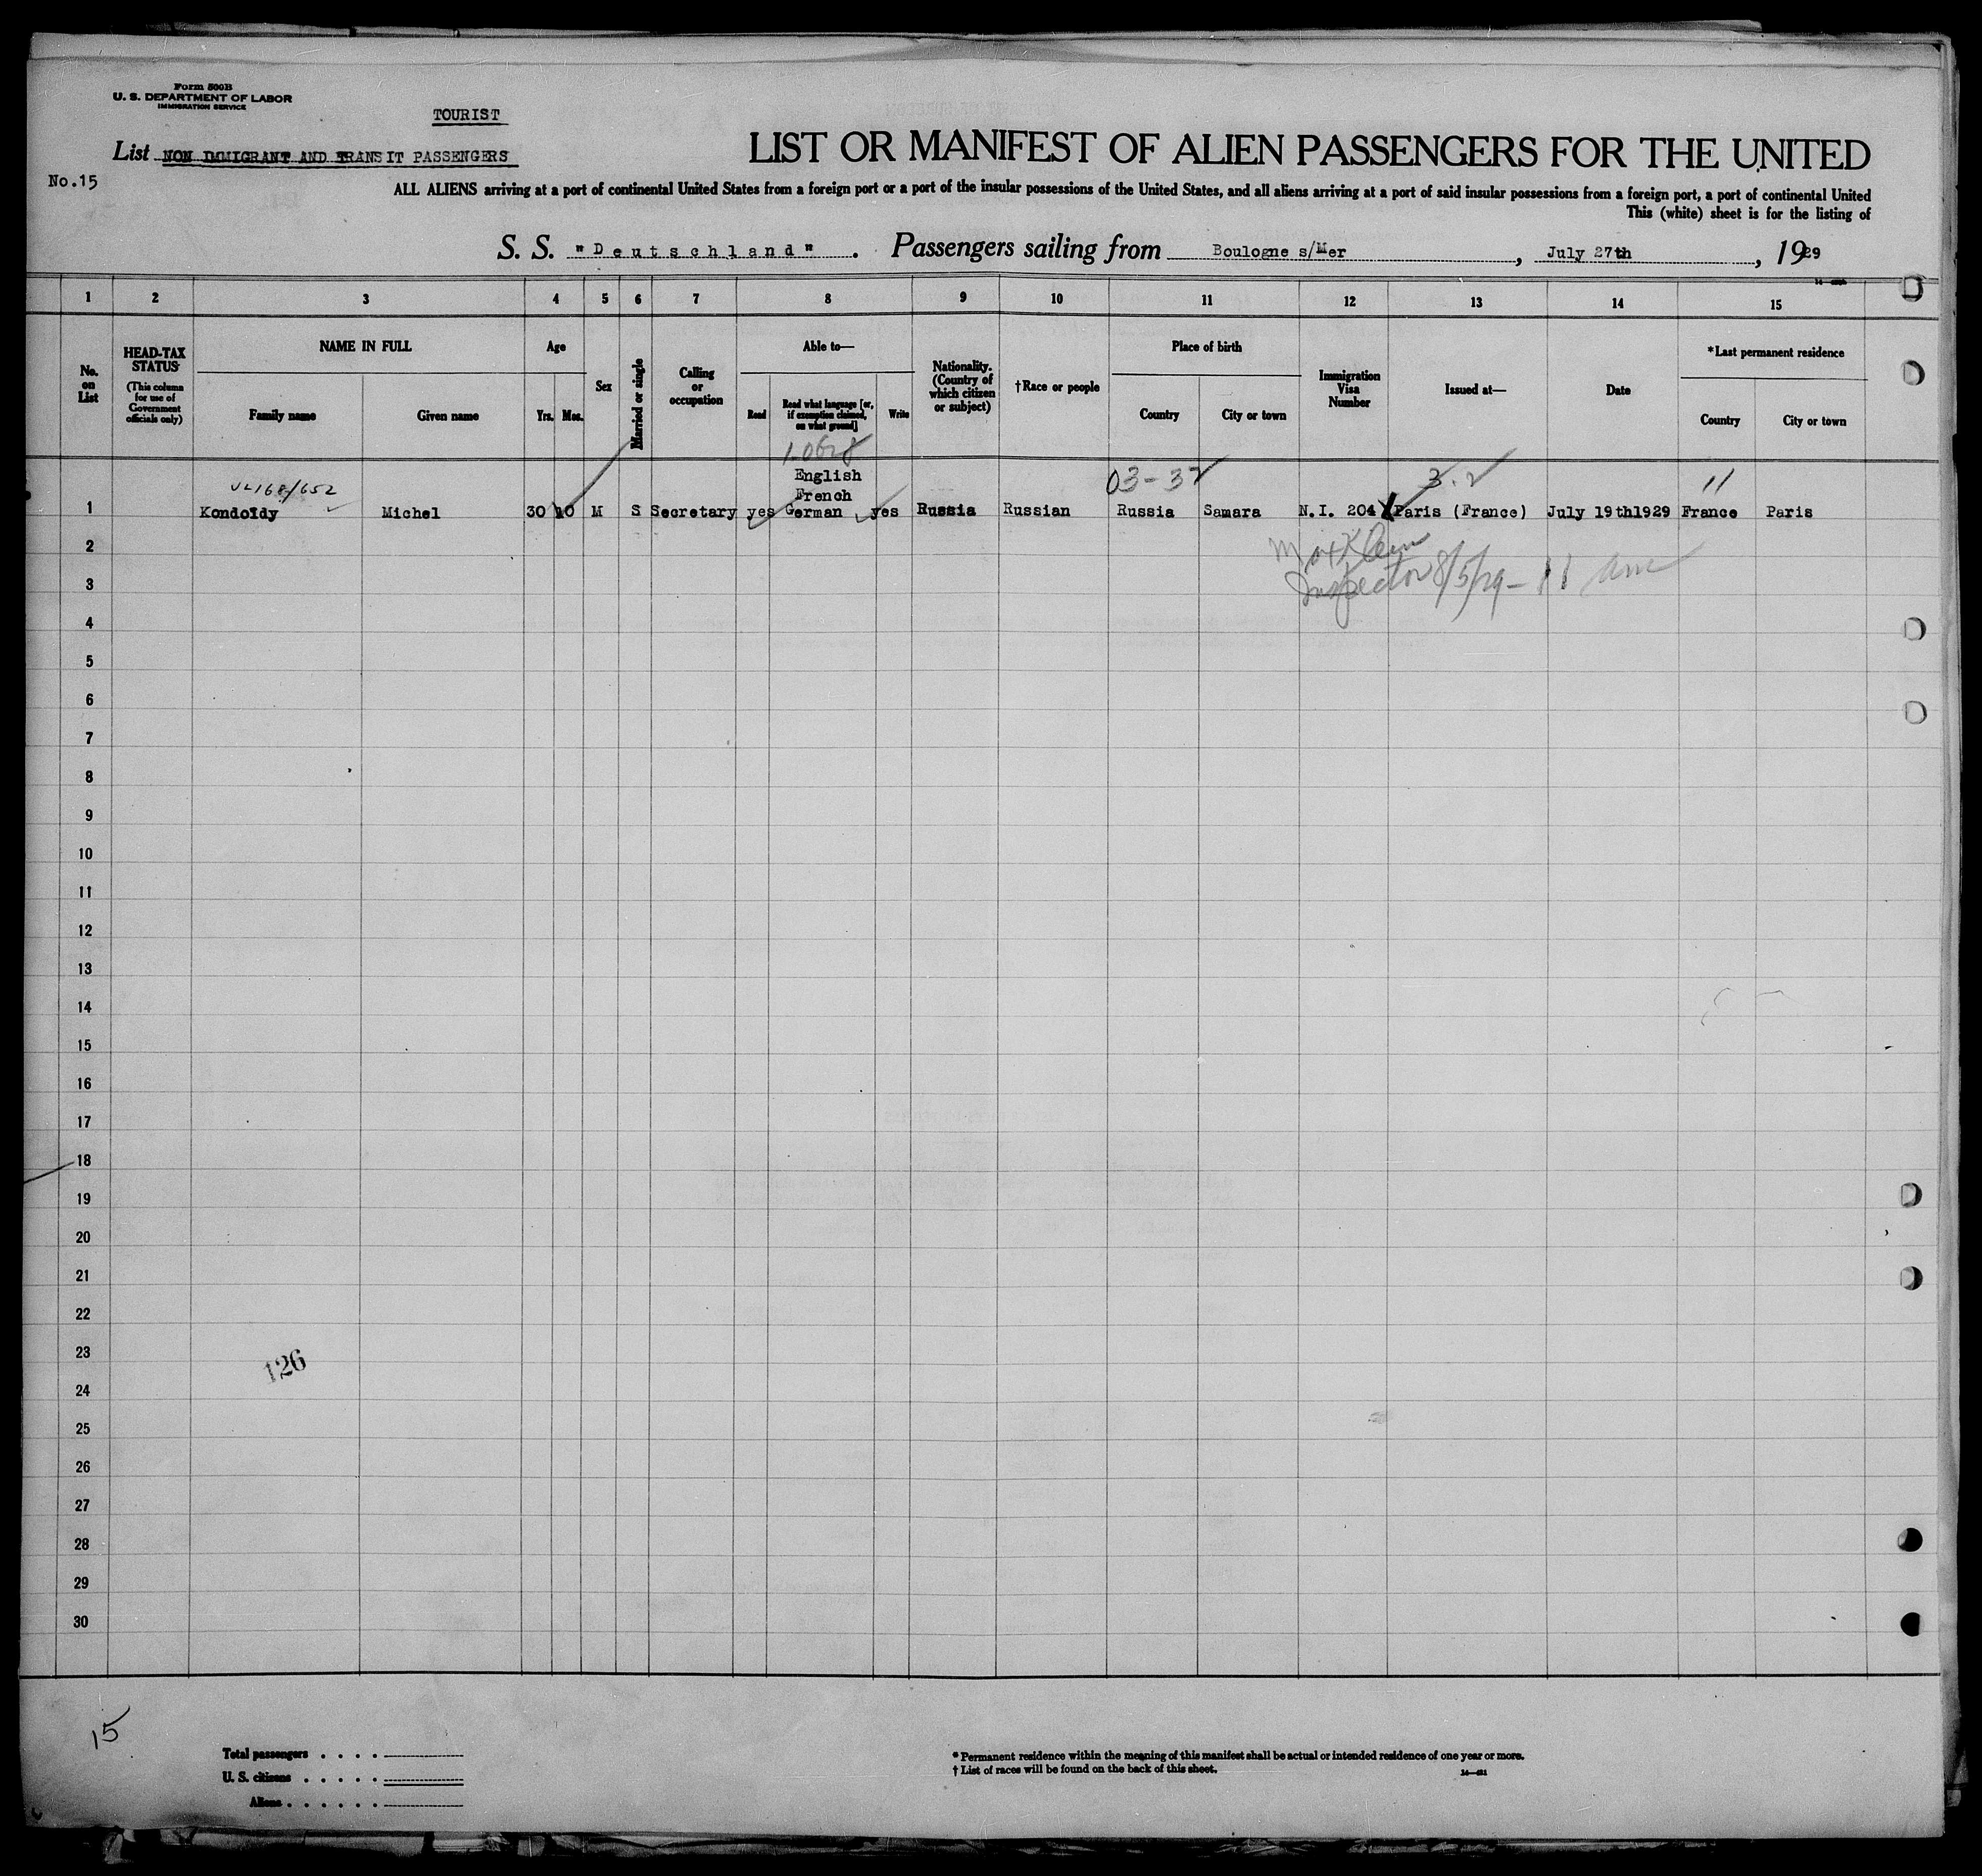 Form 500B
U. S. DEPARTMENT OF LABOR
IMMIGRATION SERVICE
TOURIST
List NON IMMIGRANT AND TRANSIT PASSENGERS
No.15
LIST OR MANIFEST OF ALIEN PASSENGERS FOR THE UNITED
ALL ALIENS arriving at a port of continental United States from a foreign port or a port of the insular possessions of the United States, and all aliens arriving at a port of said insular possessions from a foreign port, a port of continental United
This (white) sheet is for the listing of
S. S. "Deutschland". Passengers sailing from Boulogne s/Mer, July 27th, 1929
1 2 3 4 5 6 7 8 9 10 11 12 13 14 15
No. on List
HEAD-TAX STATUS
(This column for use of Government officials only)
NAME IN FULL
Family name Given name
Age
Yrs. Mos.
Sex
Married or single
Calling or occupation
Able to—
Read
Read what language [or, if exemption claimed, on what ground]
Write
Nationality. (Country of which citizen or subject)
†Race or people
Place of birth
Country City or town
Immigration Visa Number
Issued at—
Date
*Last permanent residence
Country City or town
03-32 3.2 11
English
French
1 Kondoïdy Michel 30 10 M S Secretary yes German yes Russia Russian Russia Samara N.I. 204 Paris (France) July 19th1929 France Paris
2
Inspector 8/5/29 - 11 am
3
4
5
6
7
8
9
10
11
12
13
14
15
16
17
18
19
20
21
22
23
126
24
25
26
27
28
29
30
15
Total passengers
U. S. citizens
Aliens
* Permanent residence within the meaning of this manifest shall be actual or intended residence of one year or more.
† List of races will be found on the back of this sheet.